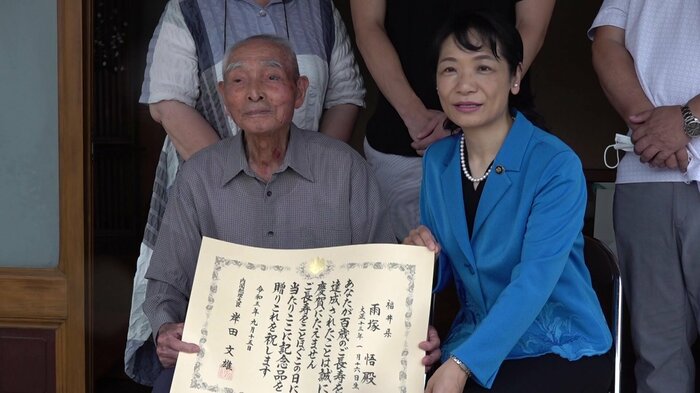 福井県
雨塚 悟 殿
大正十三年 一月十六日生
あなたが百歳のご長寿を
達成されたことは誠に
慶賀にたえません
ご長寿をことほぐこの日に
当たりここに記念品を
贈りこれを祝します
令和五年九月十五日
内閣総理大臣 岸田文雄